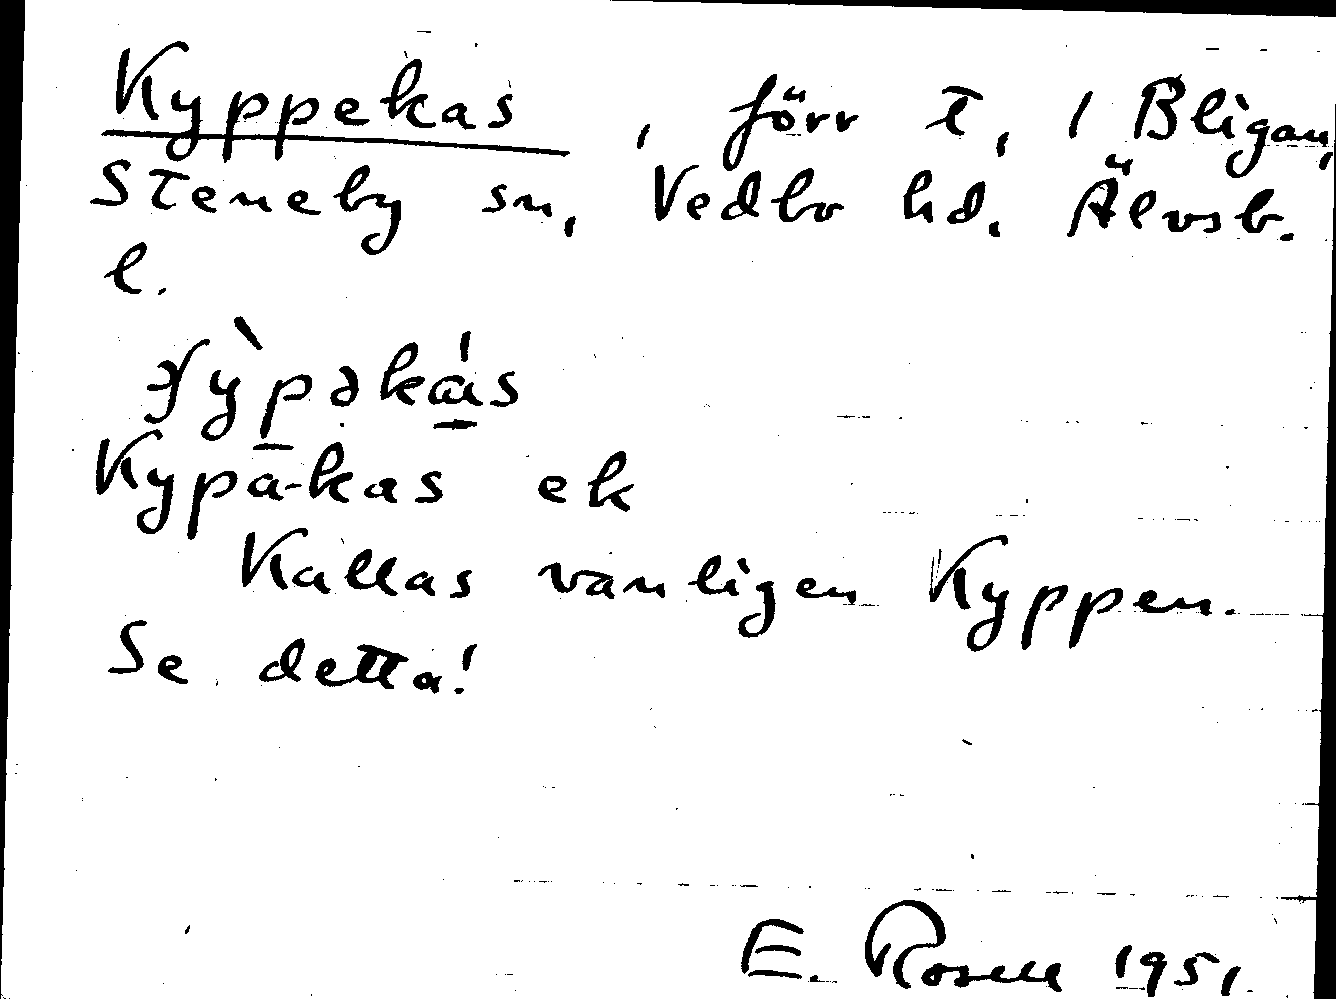 Kyppekas, förr t, 1 Bligan,
Steneby sn, Vedbo hd. Älvsb.
l.
Kypa-kas ek
Kallas vanligen Kyppen.
Se detta!
E. Rosell 1951